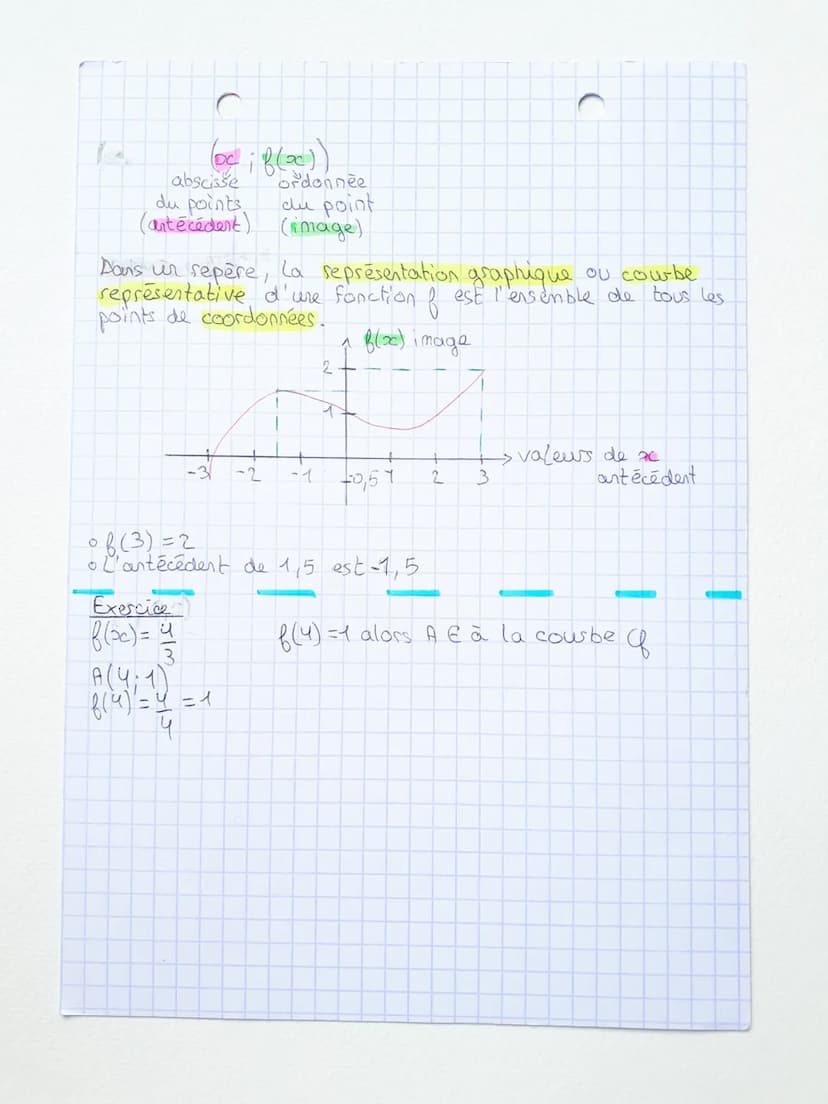 (x ; f(x))
abscisse ordonnée
du points du point
(antécédent) (image)
Dans un repère, la représentation graphique ou courbe
représentative d'une fonction f est l'ensemble de tous les
points de coordonnées.
f(x) image
2
1
-3 -2 -1 -0,5 1 2 3
valeurs de x
antécédent
o f(3) = 2
o L'antécédent de 1,5 est -1,5
Exercice
f(x) = 4/3 f(4) = 1 alors A E à la courbe Cf
A(4;1)
f(4) = 4/4 = 1